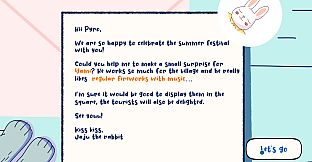 Hi! Pyro,
We are so happy to celebrate the summer festival
with you!
Could you help me to make a small surprise for
Yami? He works so much for the village and he really
likes regular fireworks with music...
I'm sure it would be good to display them in the
square, the tourists will also be delighted.
See you!
Kiss kiss,
Juju the rabbit
Let's go